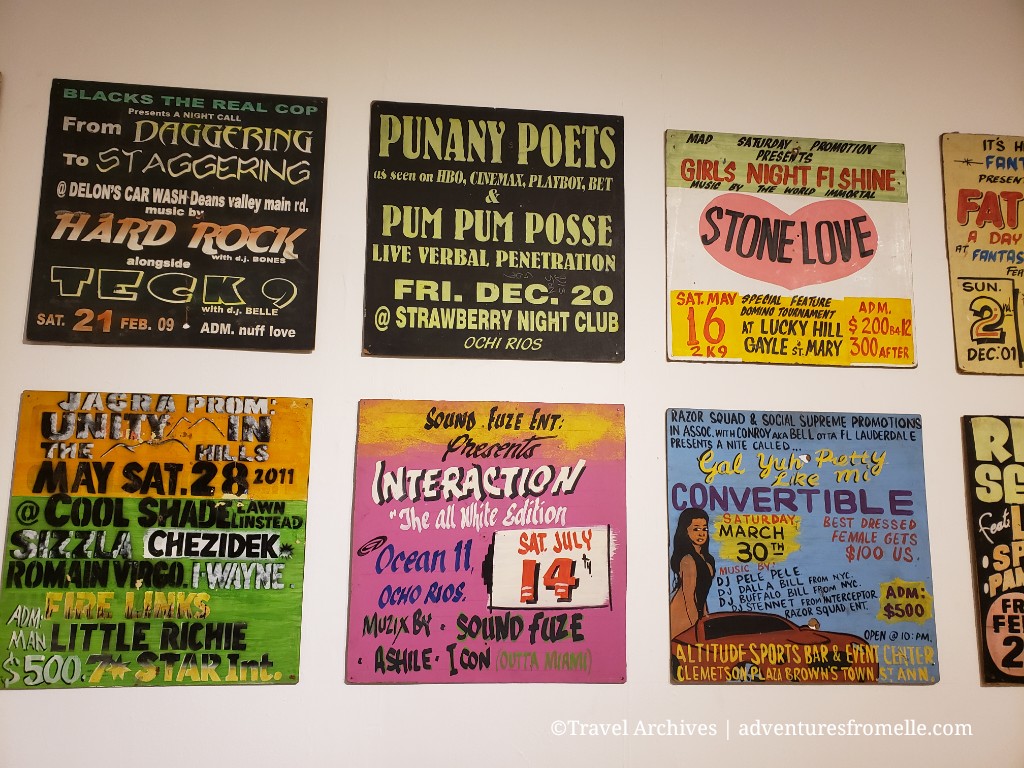 BLACKS THE REAL COP
Presents A NIGHT CALL
From DAGGERING
TO STAGGERING
@ DELON'S CAR WASH Deans valley main rd.
music by
HARD ROCK
with d.j. BONES
alongside
TECK 9
with d.j. BELLE
SAT. 21 FEB. 09 • ADM. nuff love
PUNANY POETS
as seen on HBO, CINEMAX, PLAYBOY, BET
&
PUM PUM POSSE
LIVE VERBAL PENETRATION
FRI. DEC. 20
@ STRAWBERRY NIGHT CLUB
OCHI RIOS
MAD SATURDAY PROMOTION
PRESENTS
GIRLS NIGHT FI SHINE
MUSIC BY THE WORLD IMMORTAL
STONE·LOVE
SAT. MAY
16
2K9
SPECIAL FEATURE
DOMINO TOURNAMENT
AT LUCKY HILL
GAYLE ST. MARY
ADM.
$200 B4 12
300 AFTER
IT'S
FANT
PRESEN
FAT
A DAY
AT FANTAS
FEA
SUN.
2ND
DEC. '01
JAGRA PROM:
UNITY IN
THE HILLS
MAY SAT. 28 2011
@ COOL SHADE LAWN
LINSTEAD
SIZZLA CHEZIDEK
ROMAIN VIRGO. I-WAYNE
FIRE LINKS
ADM
MAN
$500.
LITTLE RICHIE
7 STAR Int.
SOUND FUZE ENT:
Presents
INTERACTION
"The all White Edition
@ Ocean 11,
OCHO RIOS.
SAT. JULY
14TH
MUZIX BY • SOUND FUZE
• ASHILE • ICON (OUTTA MIAMI)
RAZOR SQUAD & SOCIAL SUPREME PROMOTIONS
IN ASSOC. WITH CONROY AKA BELL OTTA FL LAUDERDALE
PRESENTS A NITE CALLED...
Gal Yuh Pretty
Like mi
CONVERTIBLE
SATURDAY
MARCH
30TH
BEST DRESSED
FEMALE GETS
$100 US.
MUSIC BY:
DJ PELE PELE
DJ DALLA BILL FROM NYC.
DJ BUFFALO BILL FROM NYC.
DJ STENNET FROM INTERCEPTOR
RAZOR SQUAD ENT.
ADM:
$500
OPEN @ 10: PM.
ALTITUDE SPORTS BAR & EVENT CENTER
CLEMETSON PLAZA BROWN'S TOWN. ST. ANN.
RE
SE
feat
SP
PAN
FR
FEB
2
©Travel Archives | adventuresfromelle.com